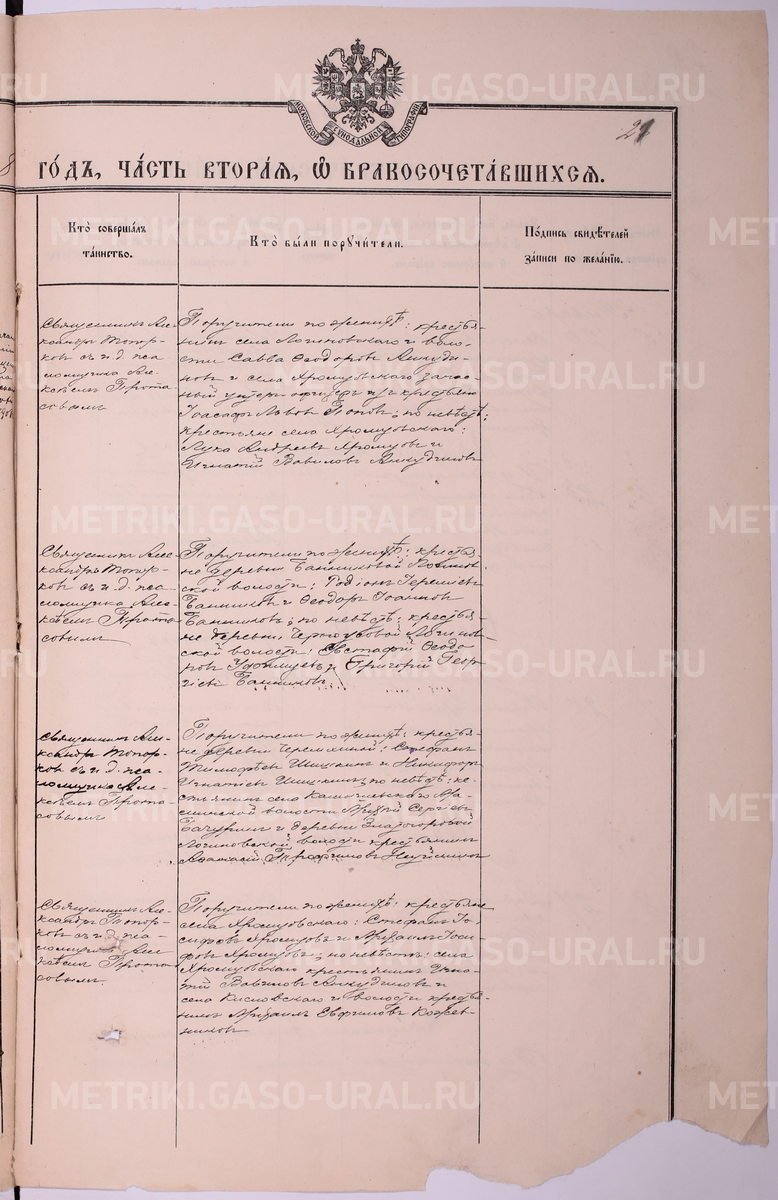 МОСКОВСКОЙ СѴНОДАЛЬНОЙ ТИПОГРАФІИ
21
8
ГО́ДЪ, ЧА́СТЬ ВТОРА́Я, Ѡ҆ БРАКОСОЧЕТА́ВШИХСЯ.
Кто̀ соверша́лъ
та́инство.
Кто̀ бы́ли поручи́тели.
По́дпись свидѣ́телей
за́писи по жела́нїю.
Священникъ Але-
ксандръ Топор-
ковъ съ и. д. пса
ломщика Але
ксѣемъ Прота
совымъ
Поручители по женихѣ: крестья-
нинъ села Логиновскаго и воло-
сти Савва Ѳеодоровъ Анкуди-
новъ и села Хромцовскаго запас-
ный унтеръ офицеръ изъ крестьянъ
Іоасафъ Львовъ Поповъ; по невѣстѣ:
крестьяне села Хромцовскаго:
Лука Андреевъ Хромцовъ и
Игнатій Вавиловъ Анкудиновъ
Священникъ Але-
ксандръ Топор-
ковъ съ и. д. пса-
ломщика Але-
ксѣемъ Прота
совымъ
Поручители по женихѣ: крестья-
не деревни Банниковой Логинов-
ской волости: Родіонъ Іереміевъ
Банниковъ и Ѳеодоръ Іоанновъ
Банниковъ; по невѣстѣ: крестья-
не деревни Черноусовой Логинов-
ской волости: Евстафій Ѳеодо-
ровъ и Григорій Геор-
гіевъ Банниковъ.
Священникъ Але-
ксандръ Топор-
ковъ съ и. д. пса-
ломщика Але-
ксѣемъ Прота-
совымъ
Поручители по женихѣ: крестья-
не деревни Стефанъ
Тимофѣевъ Шишкинъ и Никифоръ
Игнатіевъ Шишкинъ; по невѣстѣ: кре-
стьянинъ села
волости Сергіевъ
Бачуринъ и деревни Златогоровой
Логиновской волости крестьянинъ
Аѳанасій Трофимовъ
Священникъ Але-
ксандръ Топор-
ковъ съ и. д. пса-
ломщика Але
ксѣемъ Прота
совымъ.
Поручители по женихѣ: крестьяне
села Хромцовскаго: Стефанъ Іо-
сифовъ Хромцовъ и Михаилъ Іоси-
фовъ Хромцовъ; по невѣстѣ: села
Хромцовскаго крестьянинъ Игна-
тій Вавиловъ Анкудиновъ и
села Кисловскаго и волости крестья-
нинъ Михаилъ Евфимовъ Кожев-
никовъ
METRIKI.GASO-URAL.RU